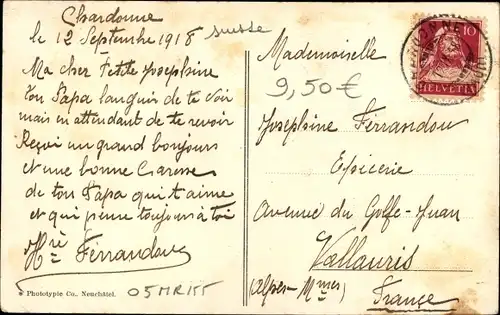 Chardonne
le 12 Septembre 1918 Suisse
Ma cher Petite Josephine
ton Papa languis de te voir
mais en attendant de te revoir
Reçoi un grand bonjours
et une bonne Caresse
de ton Papa qui t'aime
et qui pense toujours à toi
Ferrandou
Phototypie Co., Neuchâtel.
Mademoiselle
9,50€
Josephine Ferrandou
Epicerie
Avenue du Golfe-Juan
Vallauris
(Alpes-Mmes)
France
10
HELVETIA